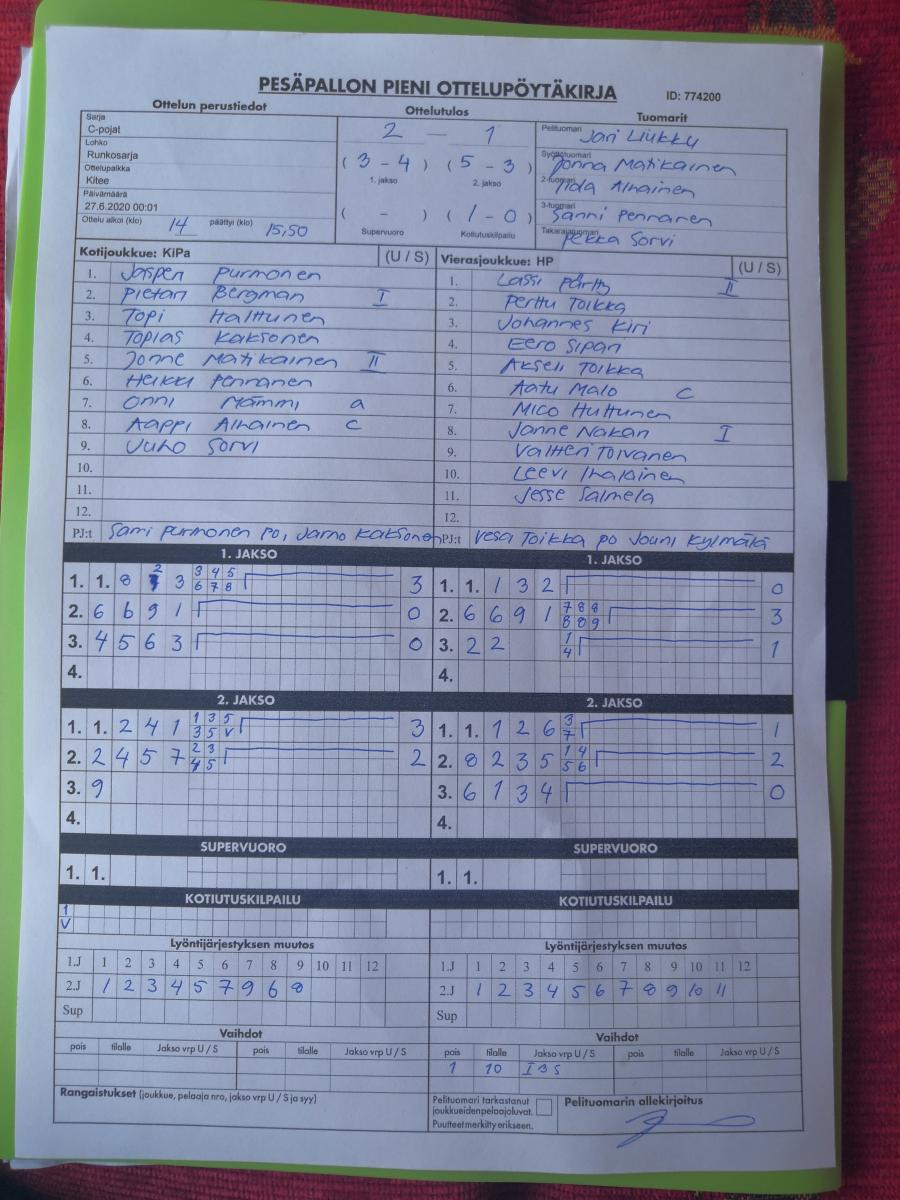 PESÄPALLON PIENI OTTELUPÖYTÄKIRJA
ID: 774200
Ottelun perustiedot
Sarja
C-pojat
Lohko
Runkosarja
Ottelupaikka
Kitee
Päivämäärä
27.6.2020 00:01
Ottelu alkoi (klo) 14 päättyi (klo) 15,50
Ottelutulos
2 — 1
( 3 - 4 ) ( 5 - 3 )
1. jakso 2. jakso
( - ) ( 1 - 0 )
Supervuoro Kotiutuskilpailu
Tuomarit
Pelituomari Jari Liukku
Syöttötuomari Jonna Matikainen
2-tuomari Iida Alhainen
3-tuomari Sanni Pennanen
Takarajatuomari Pekka Sorvi
Kotijoukkue: KiPa (U / S)
1. Jasper Purmonen
2. Pietari Bergman I
3. Topi Halttunen
4. Topias Kaksonen
5. Jonne Matikainen II
6. Heikki Pennanen
7. Onni Mämmi a
8. Aappi Alhainen c
9. Juho Sorvi
10.
11.
12.
PJ:t Sami Purmonen po, Jarno Kaksonen
Vierasjoukkue: HP (U / S)
1. Lassi Pärtty II
2. Perttu Toikka
3. Johannes Kiri
4. Eero Sipari
5. Akseli Toikka
6. Aatu Malo c
7. Mico Huttunen
8. Janne Nakari I
9. Valtteri Toivanen
10. Leevi Ihalainen
11. Jesse Salmela
12.
PJ:t Vesa Toikka po Jouni Kylmälä
1. JAKSO
1. 1. 8 2 3 3 4 5 3
6 7 8
2. 6 6 9 1 0
3. 4 5 6 3 0
4.
1. JAKSO
1. 1. 1 3 2 0
2. 6 6 9 1 7 8 8 3
8 8 9
3. 2 2 1 1
4
4.
2. JAKSO
1. 1. 2 4 1 1 3 5 3
3 5 V
2. 2 4 5 7 2 3 2
4 5
3. 9
4.
2. JAKSO
1. 1. 1 2 6 3 1
7
2. 8 2 3 5 1 4 2
5 6
3. 6 1 3 4 0
4.
SUPERVUORO
1. 1.
SUPERVUORO
1. 1.
KOTIUTUSKILPAILU
1
V
KOTIUTUSKILPAILU
Lyöntijärjestyksen muutos
1.J 1 2 3 4 5 6 7 8 9 10 11 12
2.J 1 2 3 4 5 7 9 6 8
Sup
Lyöntijärjestyksen muutos
1.J 1 2 3 4 5 6 7 8 9 10 11 12
2.J 1 2 3 4 5 6 7 8 9 10 11
Sup
Vaihdot
pois tilalle Jakso vrp U / S pois tilalle Jakso vrp U / S
Vaihdot
pois tilalle Jakso vrp U / S pois tilalle Jakso vrp U / S
1 10 I 3 S
Rangaistukset (joukkue, pelaaja nro, jakso vrp U / S ja syy)
Pelituomari tarkastanut
joukkueidenpelaajaluvat.
Puutteet merkitty erikseen.
Pelituomarin allekirjoitus